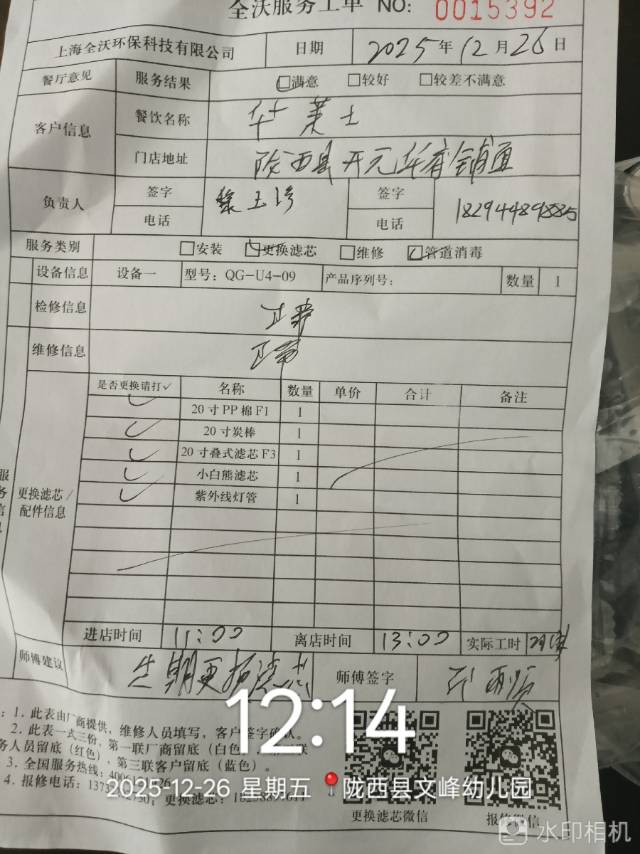 全沃服务工单 NO: 0015392
上海全沃环保科技有限公司 日期 2025年12月26日
餐厅意见 服务结果 满意 较好 较差不满意
客户信息 餐饮名称 华莱士
门店地址 陇西县开元华府铺面
负责人 签字 签字
电话 电话
服务类别 安装 更换滤芯 维修 管道消毒
设备信息 设备一 型号: QG-U4-09 产品序列号: 数量 1
检修信息 正常
维修信息 正常
是否更换请打✓ 名称 数量 单价 合计 备注
✓ 20寸PP棉F1 1
✓ 20寸炭棒 1
✓ 20寸叠式滤芯F3 1
✓ 小白熊滤芯 1
✓ 紫外线灯管 1
更换滤芯/
配件信息
进店时间 11:00 离店时间 13:00 实际工时
师傅建议 定期更换滤芯 师傅签字
1. 此表由厂商提供, 维修人员填写, 客户签字确认。
2. 此表一式三份, 第一联厂商留底(白色
务人员留底(红色), 第三联客户留底(蓝色)。
3. 全国服务热线:
4. 报修电话: 更换滤芯:
更换滤芯微信 报修微信
12:14
2025-12-26 星期五 陇西县文峰幼儿园
水印相机